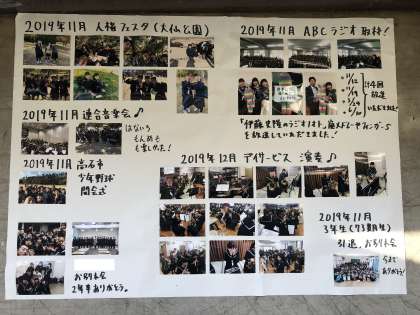 2019年11月 人権フェスタ(大仏公園)
2019年11月 ABCラジオ取材!
計4回
放送
いただきました!
『伊藤史隆のラジオノオト』
を放送していただきました!
2019年11月 連合音楽会♪
はないろ
もんめも
も楽しかった!
2019年11月 高石市
少年野球
開会式
2019年12月 デイサービス 演奏♪
お別れ会
2年半ありがとう。
2019年11月
3年生(73期生)
引退、お別れ会
今まで
ありがとう!